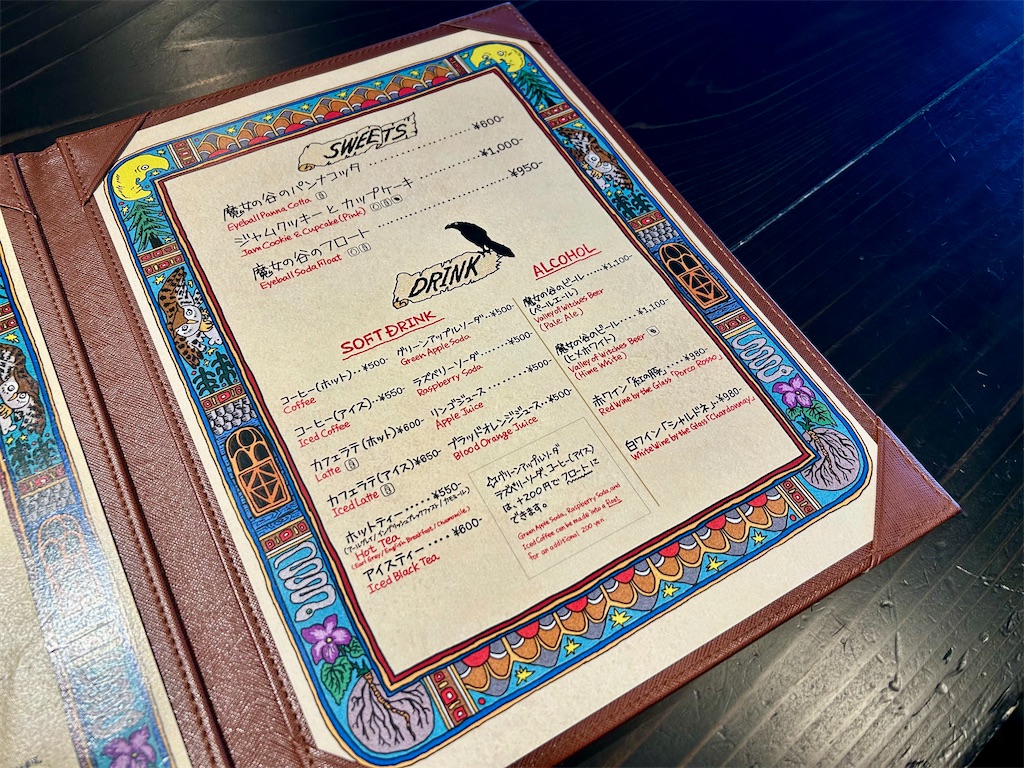 SWEETS
魔女の谷のパンナコッタ ¥600-
Eyeball Panna Cotta
ジャムクッキーとカップケーキ ¥1,000-
Jam Cookie & Cupcake (Pink)
魔女の谷のフロート ¥950-
Eyeball Soda Float
DRINK
SOFT DRINK
コーヒー(ホット)‥¥500-
Coffee
コーヒー(アイス)‥¥550-
Iced Coffee
カフェラテ(ホット)¥600-
Latte
カフェラテ(アイス)¥650-
Iced Latte
ホットティー‥‥¥550-
(アールグレイ/イングリッシュブレックファスト/カモミール)
Hot Tea
(Earl Grey / English Breakfast / Chamomile)
アイスティー‥‥¥600-
Iced Black Tea
グリーンアップルソーダ‥¥500-
Green Apple Soda
ラズベリーソーダ ¥500-
Raspberry Soda
リンゴジュース ¥500-
Apple Juice
ブラッドオレンジジュース‥¥500-
Blood Orange Juice
☆グリーンアップルソーダ
ラズベリーソーダ、コーヒー(アイス)
は、+200円でフロートに
できます。
Green Apple Soda, Raspberry Soda, and
Iced Coffee can be made into a float
for an additional 200 yen
ALCOHOL
魔女の谷のビール‥‥¥1,100-
(ペールエール)
Valley of Witches Beer
(Pale Ale)
魔女の谷のビール‥‥¥1,100-
(ヒメホワイト)
Valley of Witches Beer
(Hime White)
赤ワイン「紅の豚」‥¥980-
Red Wine by the Glass "Porco Rosso"
白ワイン「シャルドネ」‥¥980-
White Wine by the Glass "Chardonnay"